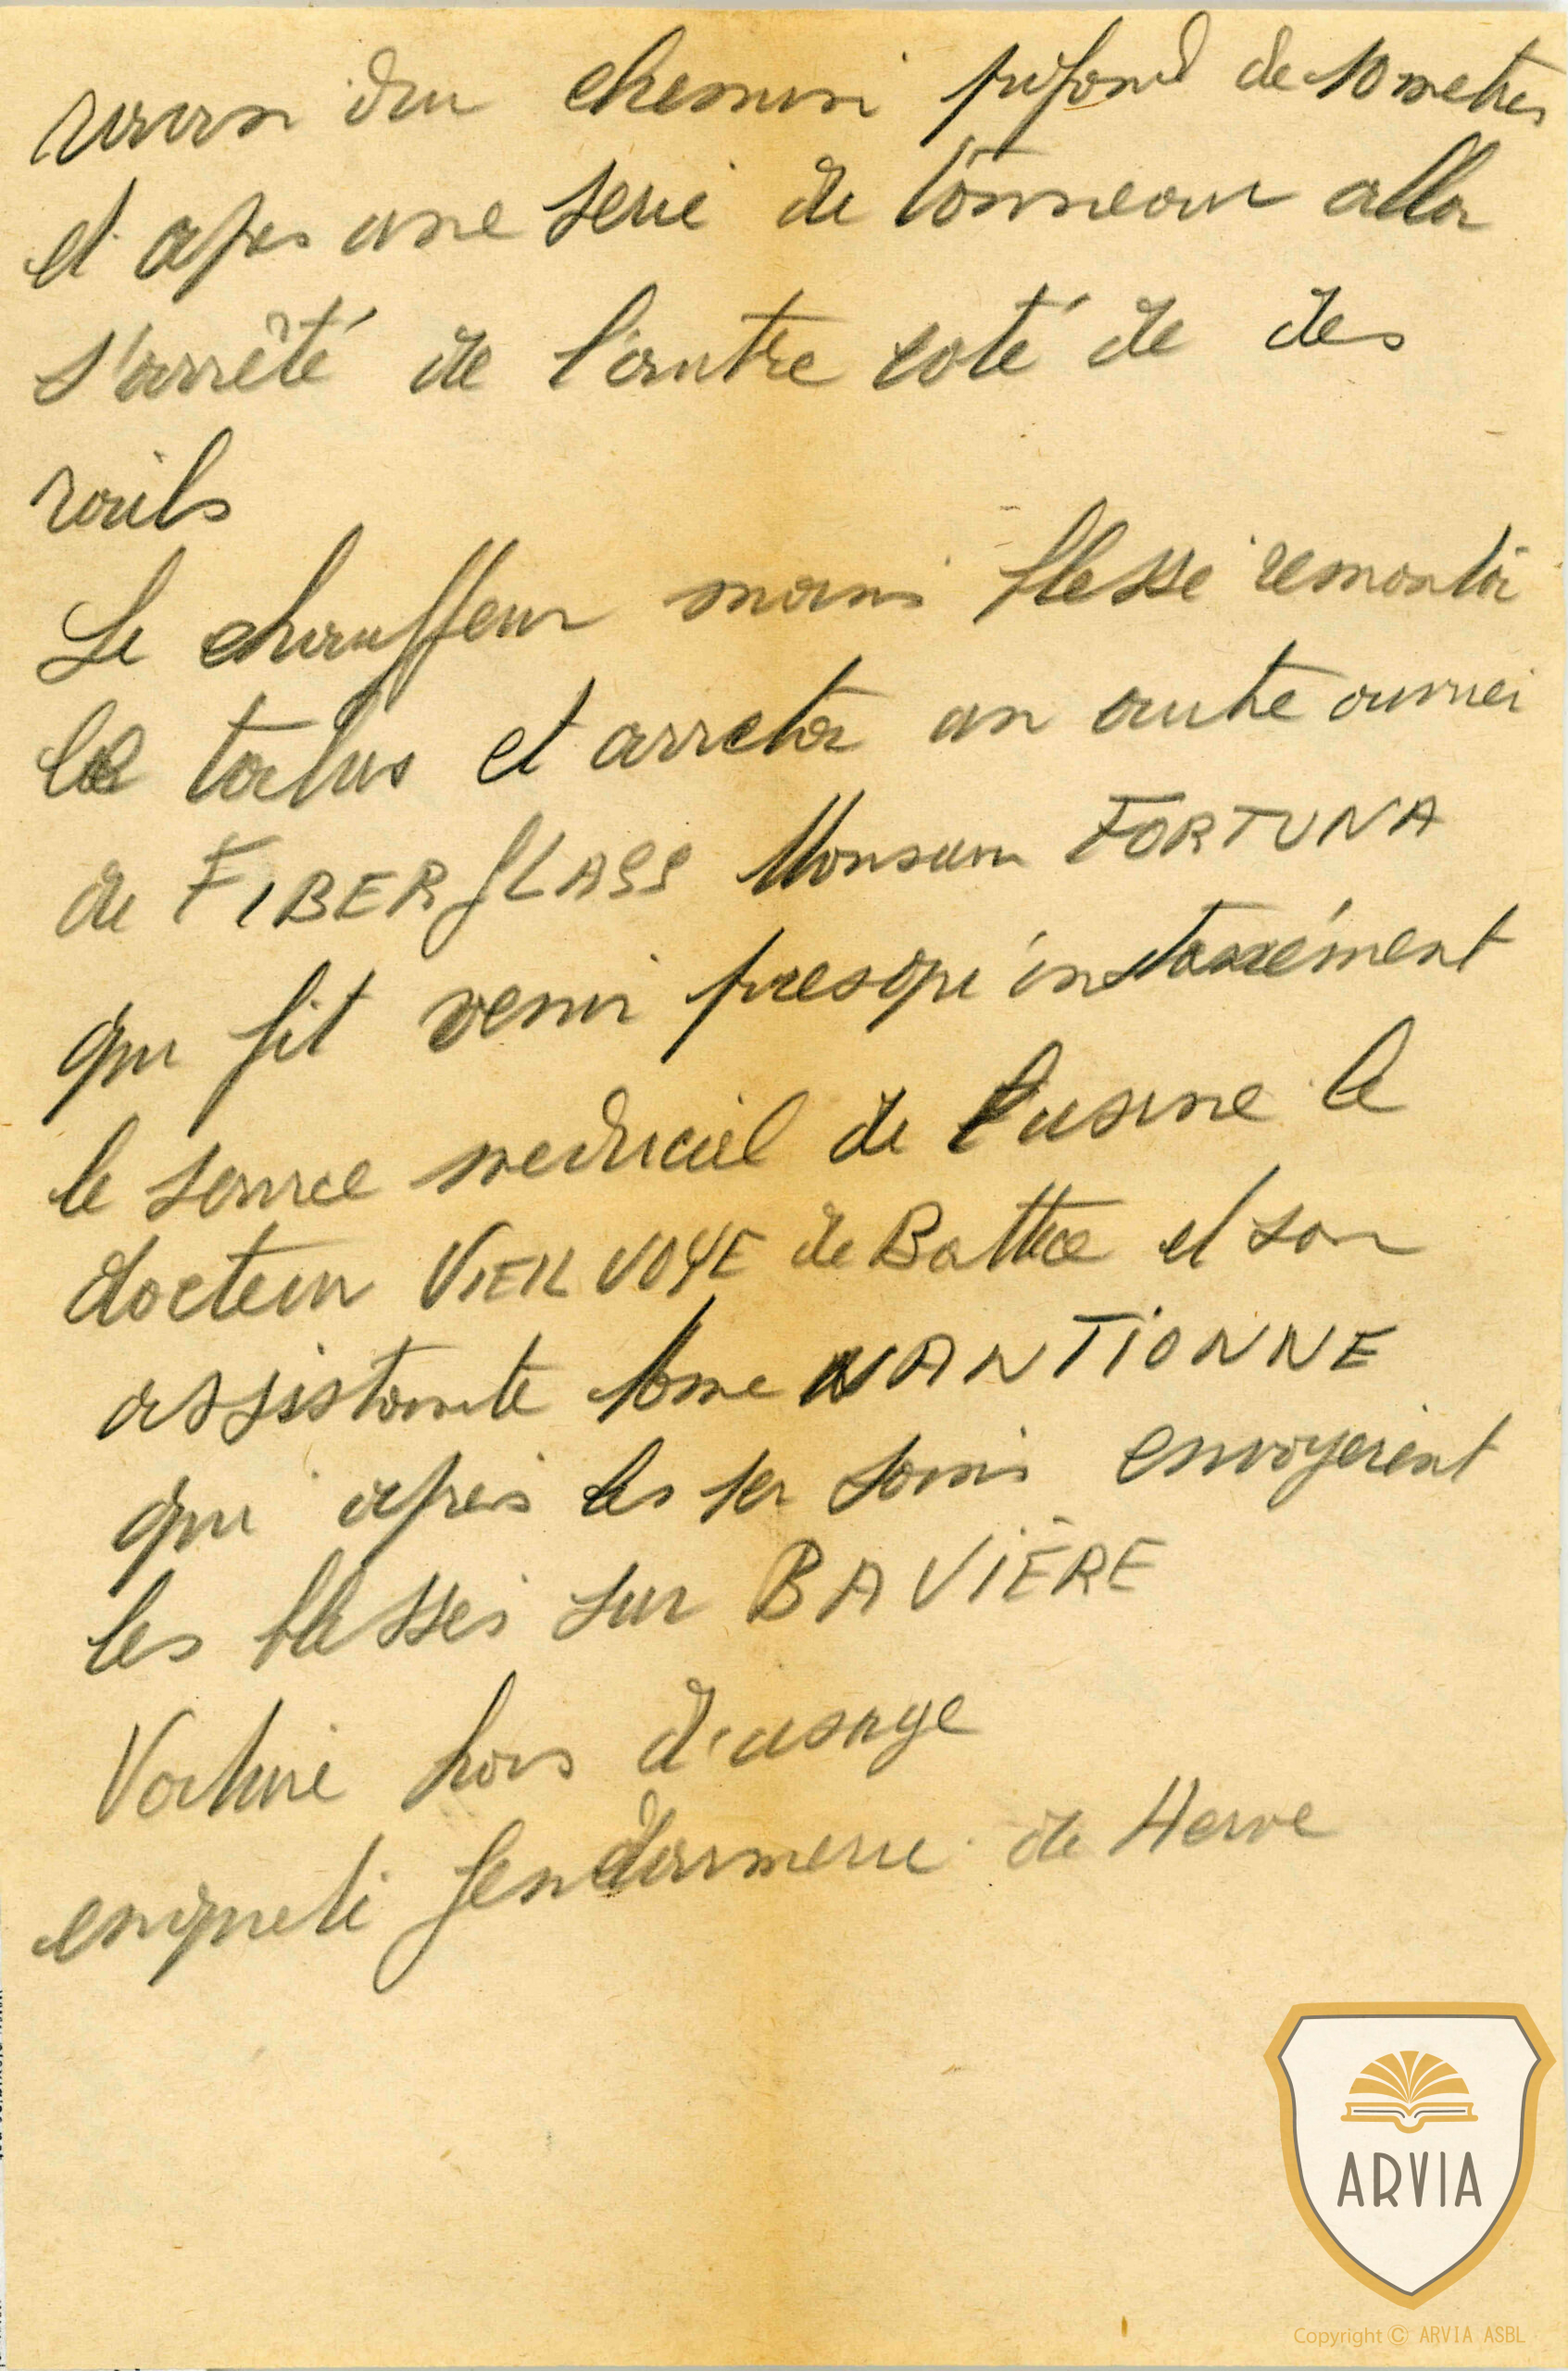 ravin du chemin profond de 10 metres
et apres une serie de tonneau alla
s'arrêté de l'autre coté de des
rails
Le chauffeur moins blessé remonta
le talus et arreta un autre ouvrier
de FIBERGLASS Monsieur FORTUNA
qui fit venir presque instanément
le service medical de l'usine le
docteur VIEILVOYE de Battice et son
assistante Mme NANTIONNE
qui apres les 1er soins envoyerent
les blesses sur BAVIÈRE
Voiture hors d'usage
enquete gendarmerie de Herve
ARVIA
Copyright © ARVIA ASBL